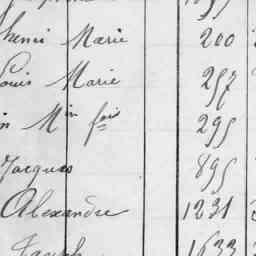 henri Marie 200
Louis Marie 257
in Min fois 295
Jacques 895
Alexandre 1231 2
Joseph 1633